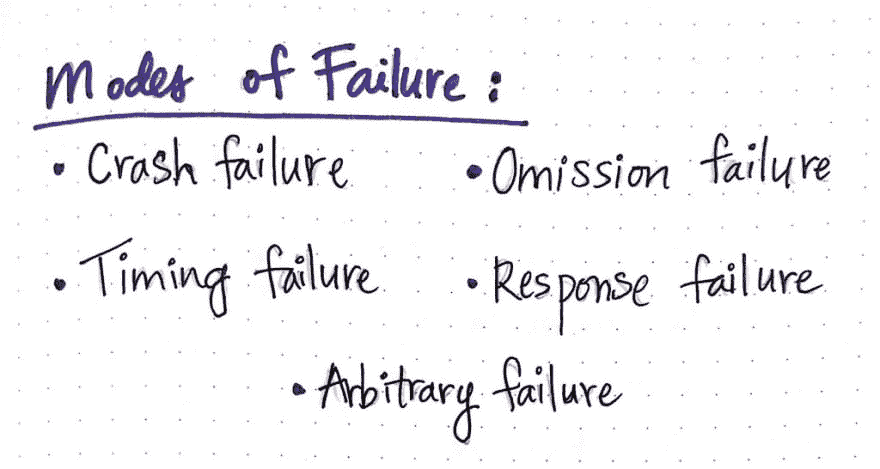 Modes of Failure:
• Crash failure
• Omission failure
• Timing failure
• Response failure
• Arbitrary failure